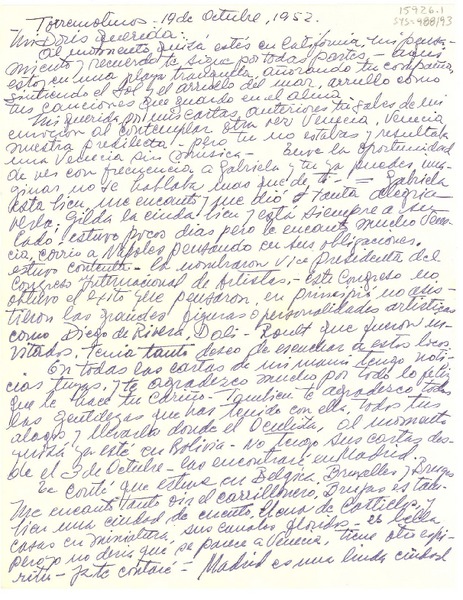 15926.1
SYS=988193
Torremolinos - 19 de Octubre, 1952.
Mi Doris querida:
Al momento quizá estés en California, mi pensa-
miento y recuerdo te sigue por todas partes - aquí
estoy en una playa tranquila, añorando tu compañía,
sintiendo el sol y el arrullo del mar, arrullo como
tus canciones que guardo en el alma
Mi querida por mis cartas anteriores tu sabes de mi
emoción al contemplar otra vez Venecia, Venecia
nuestra predilecta - pero tu no estabas y resultaba
una Venecia sin musica - Tuve la oportunidad
de ver con frecuencia a Gabriela - tu ya puedes ima-
ginar no se hablaba mas que de ti - = Gabriela
esta bien, me encantó y me dió tanta alegria
verla. Gilda la cuida bien y está siempre a su
lado. estuvo pocos dias pero le encantó mucho Vene-
cia, corrió a Napoles pensando en sus obligaciones.
estuvo contenta - la nombraron Vice Presidenta del
Congreso Internacional de Artistas. - Este Congreso no
obtuvo el éxito que pensaron, en principio no asis-
tieron las grandes figuras o personalidades artisticas
como Diego de Rivera, Dalí - que fueron in-
vitados. Tenía tanto deseo de escuchar a estos locos.
En todas las cartas de mi mami tengo noti-
cias tuyas, y te agradezco mucho por todo lo feliz
que le hace tu cariño - Tambien te agradezco todas
las gentilezas que has tenido con ella, todos tus
alagos y llevarla donde el Oculista, al momento
quizá ya esté en Bolivia - No tengo sus cartas des-
de el 3 de Octubre - las encontraré en Madrid.
Te conté que estuve en Belgica, Bruxelles y Bruges
Me encantó tanto oir el carrillonero, Bruges es tam-
bien una ciudad de cuento, llena de Castillos,
casas en miniatura, sus canales floridos - es bella
pero yo no diria que se parece a Venecia, tiene otro espi-
ritu - ya te contaré - Madrid es una linda ciudad